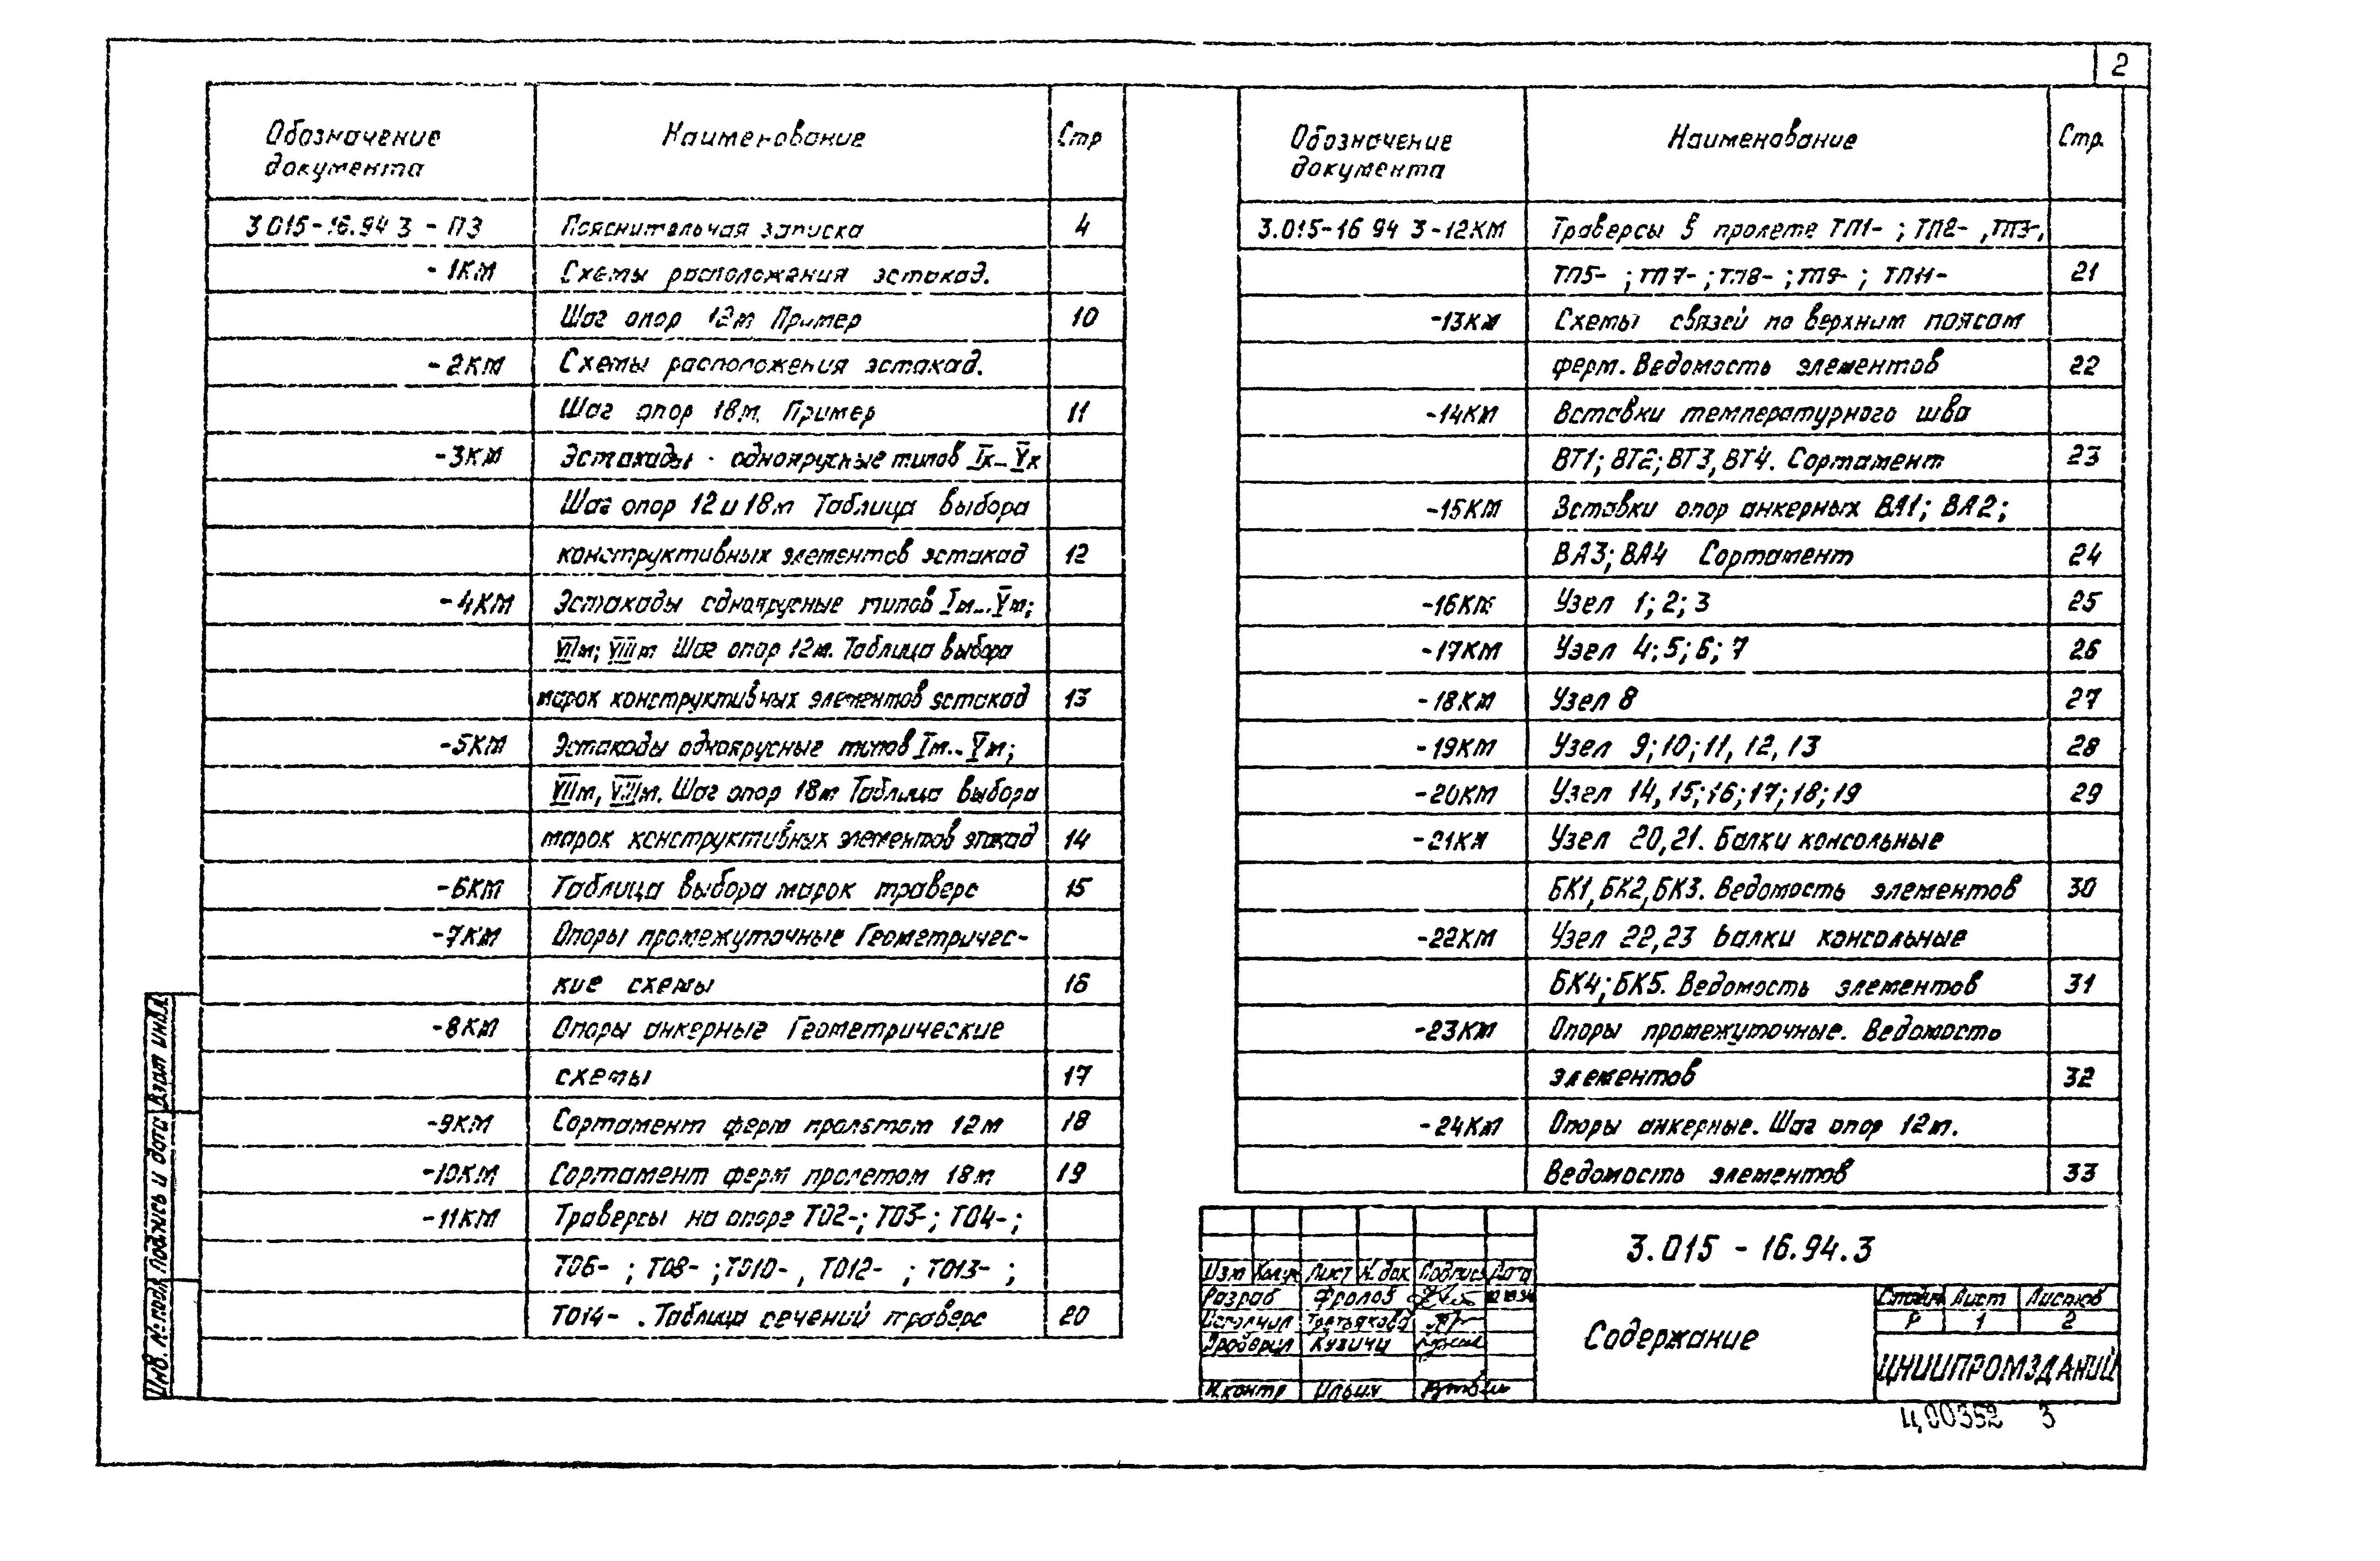 2
Обозначение документа Наименование Стр
3.015-16.94 3 - ПЗ Пояснительная записка 4
-1КМ Схемы расположения эстакад.
Шаг опор 12м Пример 10
-2КМ Схемы расположения эстакад.
Шаг опор 18м. Пример 11
-3КМ Эстакады одноярусные типов Iк...Vк
Шаг опор 12 и 18м Таблица выбора
конструктивных элементов эстакад 12
-4КМ Эстакады одноярусные типов Iм...Vм;
VIIм; VIIIм Шаг опор 12м. Таблица выбора
марок конструктивных элементов эстакад 13
-5КМ Эстакады одноярусные типов Iм...Vм;
VIIм, VIIIм. Шаг опор 18м Таблица выбора
марок конструктивных элементов эстакад 14
-6КМ Таблица выбора марок траверс 15
-7КМ Опоры промежуточные Геометричес-
кие схемы 16
-8КМ Опоры анкерные Геометрические
схемы 17
-9КМ Сортамент ферм пролетом 12м 18
-10КМ Сортамент ферм пролетом 18м 19
-11КМ Траверсы на опоре ТО2-; ТО3-; ТО4-;
ТО6- ; ТО8- ; ТО10- , ТО12- ; ТО13- ;
ТО14- . Таблица сечений траверс 20
Обозначение документа Наименование Стр.
3.015-16 94 3-12КМ Траверсы в пролете ТП1- ; ТП2- , ТП3-,
ТП5- ; ТП7- ; ТП8- ; ТП9- ; ТП11- 21
-13КМ Схемы связей по верхним поясам
ферм. Ведомость элементов 22
-14КМ Вставки температурного шва
ВТ1; ВТ2; ВТ3, ВТ4. Сортамент 23
-15КМ Вставки опор анкерных ВА1; ВА2;
ВА3; ВА4 Сортамент 24
-16КМ Узел 1; 2; 3 25
-17КМ Узел 4; 5; 6; 7 26
-18КМ Узел 8 27
-19КМ Узел 9; 10; 11, 12, 13 28
-20КМ Узел 14, 15; 16; 17; 18; 19 29
-21КМ Узел 20, 21. Балки консольные
БК1, БК2, БК3. Ведомость элементов 30
-22КМ Узел 22, 23 Балки консольные
БК4; БК5. Ведомость элементов 31
-23КМ Опоры промежуточные. Ведомость
элементов 32
-24КМ Опоры анкерные. Шаг опор 12м.
Ведомость элементов 33
Инв. № подл. Подпись и дата Взам инв.
3.015 - 16.94.3
Изм Кол.уч Лист № док Подпись Дата
Разраб Фролов
Исполнил Третьякова
Проверил Кузичи
Н.контр Ильич
Содержание
Стадия Лист Листов
Р 1 2
ЦНИИПРОМЗДАНИЙ
Ц00352 3